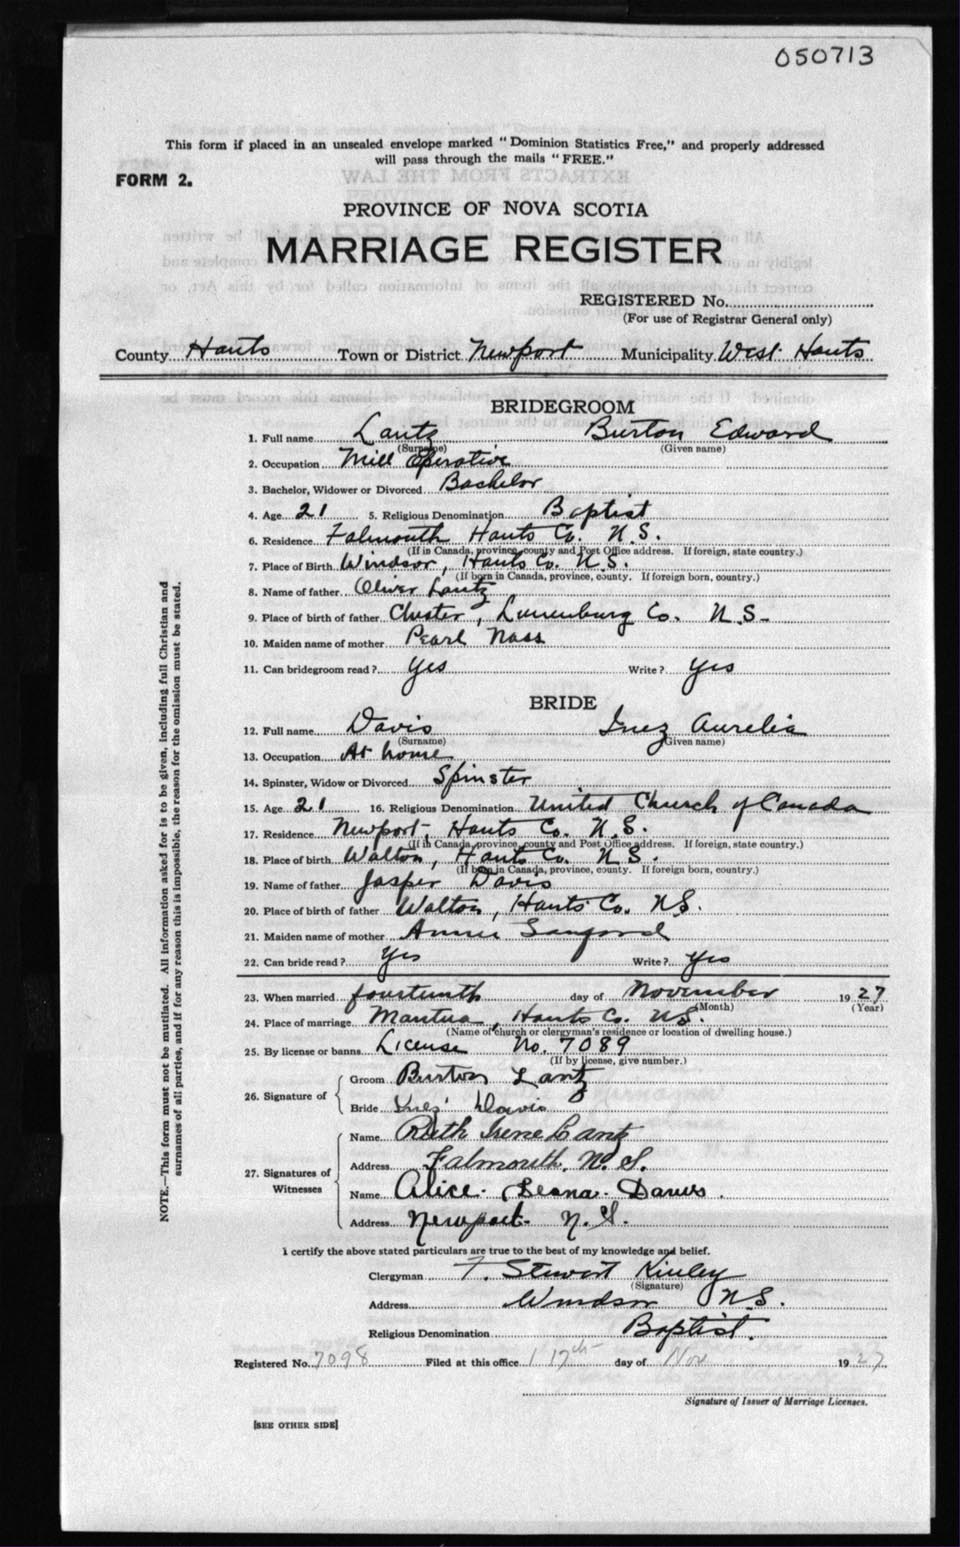 050713
This form if placed in an unsealed envelope marked "Dominion Statistics Free," and properly addressed
will pass through the mails "FREE."
FORM 2.
PROVINCE OF NOVA SCOTIA
MARRIAGE REGISTER
REGISTERED No.
(For use of Registrar General only)
County Hants Town or District Newport Municipality West Hants
BRIDEGROOM
1. Full name Lantz Burton Edward
(Surname) (Given name)
2. Occupation Mill Operative
3. Bachelor, Widower or Divorced Bachelor
4. Age 21 5. Religious Denomination Baptist
6. Residence Falmouth Hants Co. N.S.
(If in Canada, province, county and Post Office address. If foreign, state country.)
7. Place of Birth Windsor, Hants Co. N.S.
(If born in Canada, province, county. If foreign born, country.)
8. Name of father Oliver Lantz
9. Place of birth of father Chester, Lunenburg Co. N.S.
10. Maiden name of mother Pearl Nass
11. Can bridegroom read? Yes Write? Yes
BRIDE
12. Full name Davis Inez Aurelia
(Surname) (Given name)
13. Occupation At home
14. Spinster, Widow or Divorced Spinster
15. Age 21 16. Religious Denomination United Church of Canada
17. Residence Newport, Hants Co. N.S.
(If in Canada, province, county and Post Office address. If foreign, state country.)
18. Place of birth Walton, Hants Co. N.S.
(If born in Canada, province, county. If foreign born, country.)
19. Name of father Jasper Davis
20. Place of birth of father Walton, Hants Co. N.S.
21. Maiden name of mother Annie Sanford
22. Can bride read? Yes Write? Yes
23. When married fourteenth day of November 1927
(Month) (Year)
24. Place of marriage Mantua, Hants Co. N.S.
(Name of church or clergyman's residence or location of dwelling house.)
25. By license or banns License No. 7089
(If by license, give number.)
26. Signature of Groom Burton Lantz
Bride Inez Davis
27. Signatures of Witnesses Name Ruth Irene Lantz
Address Falmouth, N.S.
Name Alice Leona Davis.
Address Newport N.S.
I certify the above stated particulars are true to the best of my knowledge and belief.
Clergyman F. Stewart Kinley
(Signature)
Address Windsor N.S.
Religious Denomination Baptist.
Registered No. 7098 Filed at this office 17th day of Nov 1927
Signature of Issuer of Marriage Licenses.
[SEE OTHER SIDE]
NOTE.—This form must not be mutilated. All information asked for is to be given, including full Christian and
surnames of all parties, and if for any reason this is impossible, the reason for the omission must be stated.